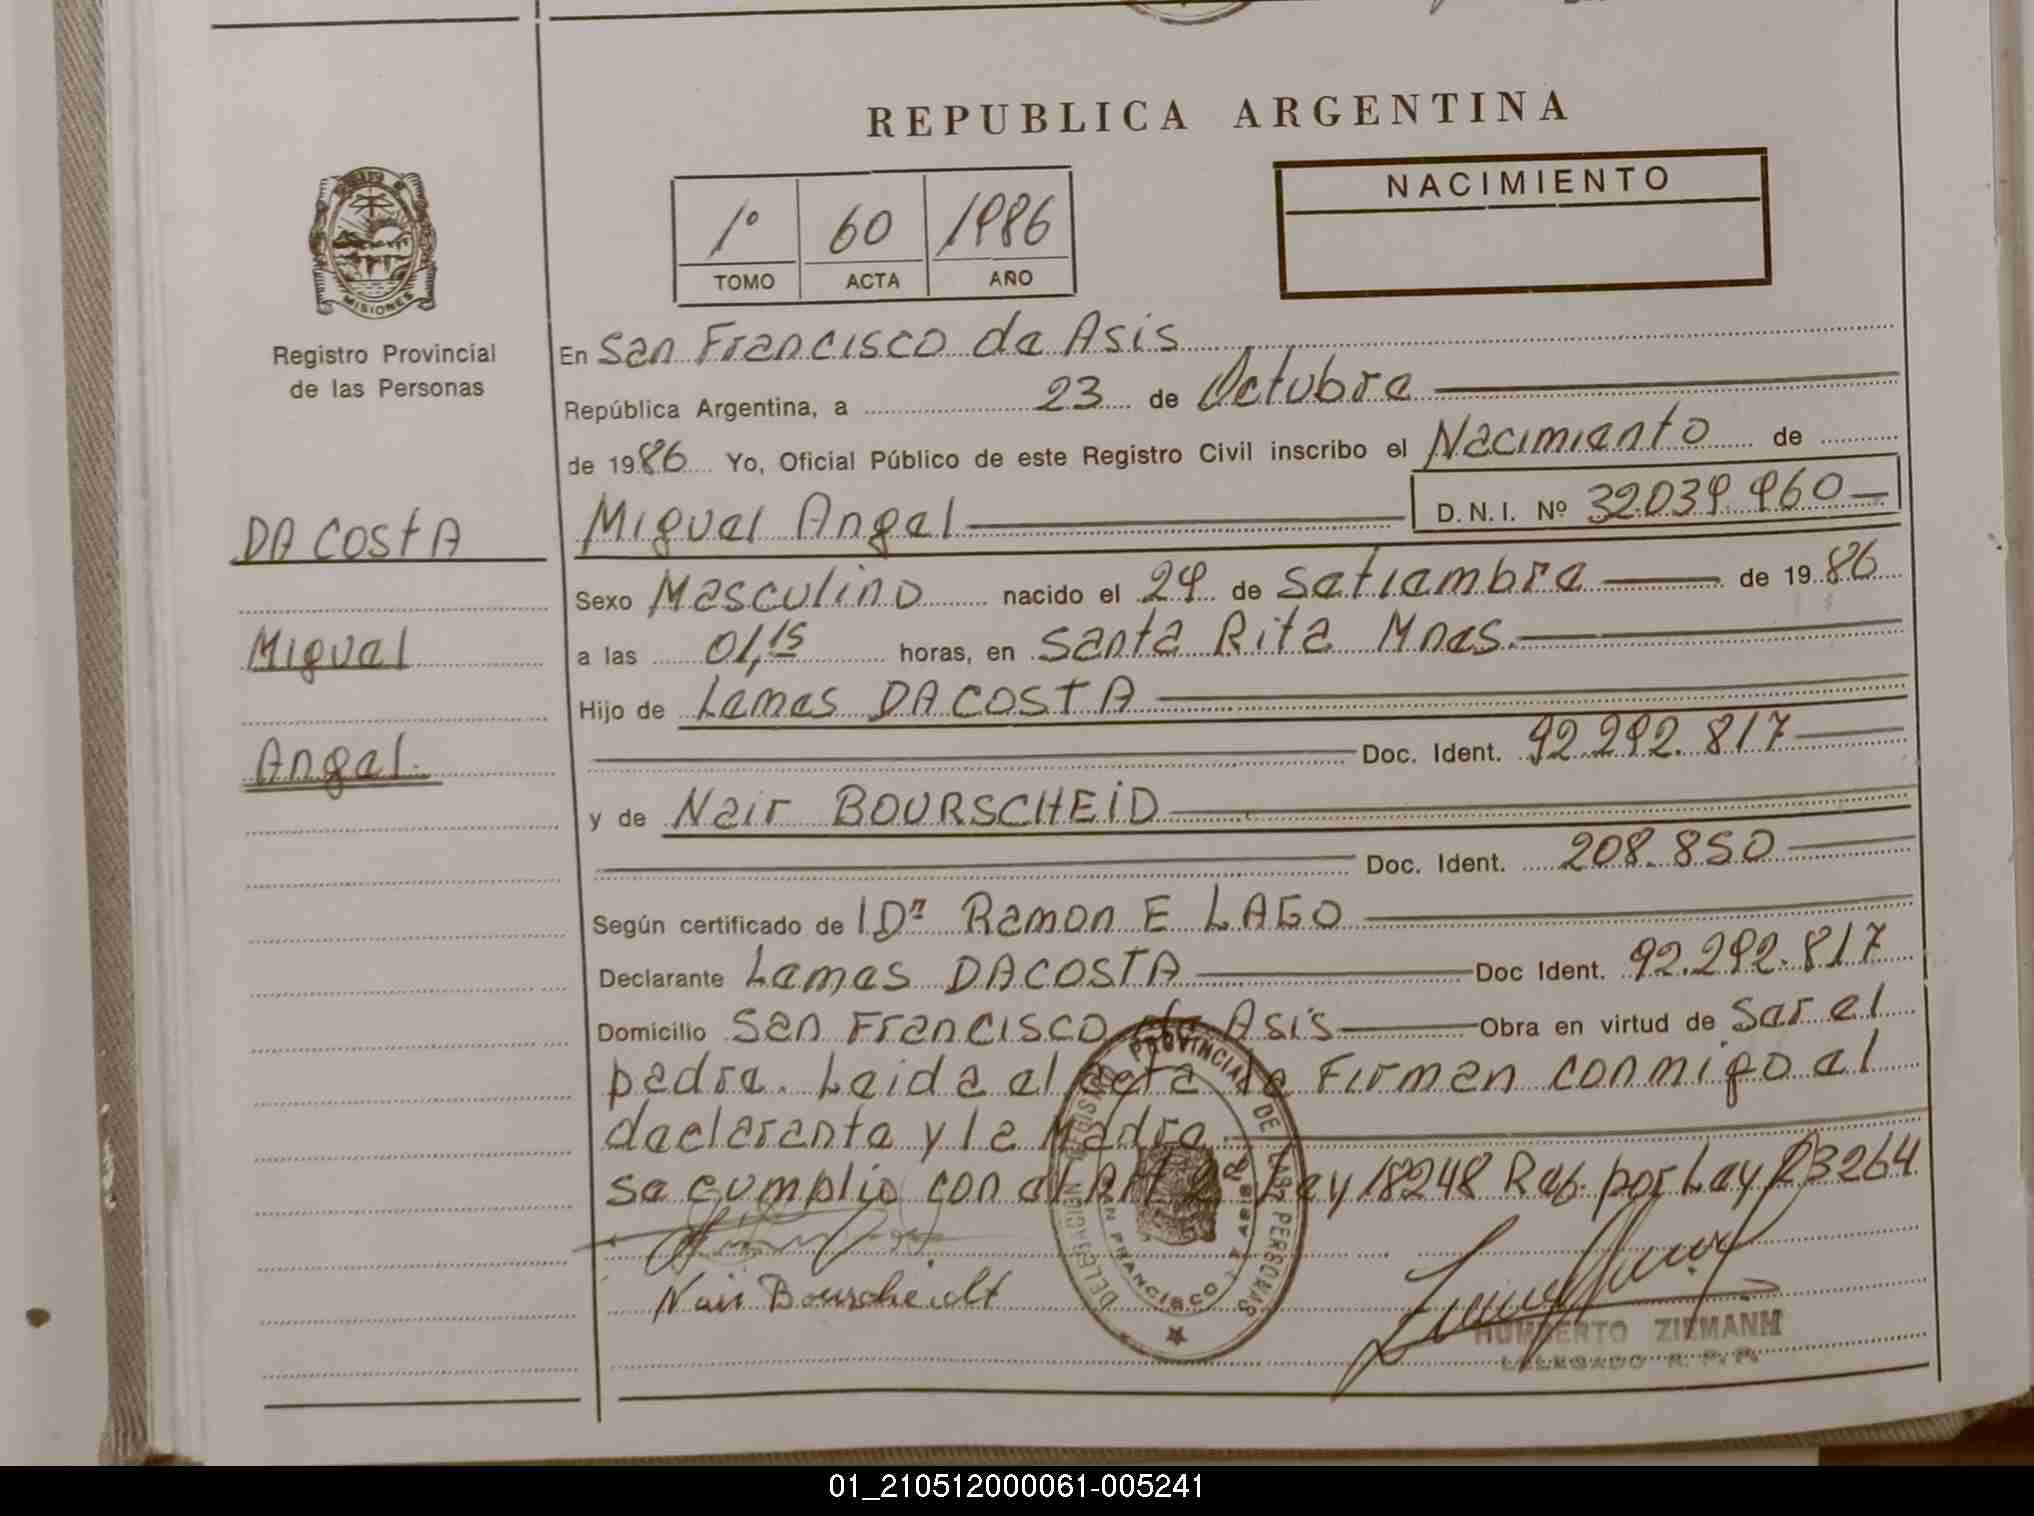 REPUBLICA ARGENTINA
NACIMIENTO
1º 60 1986
TOMO ACTA AÑO
MISIONES
Registro Provincial
de las Personas
En San Francisco de Asis
República Argentina, a 23 de Octubre
de 1986 Yo, Oficial Público de este Registro Civil inscribo el Nacimiento de
DA COSTA
Miguel
Angel
Miguel Angel D.N.I. Nº 32.039.960
Sexo Masculino nacido el 29 de Setiembre de 1986
a las 01,15 horas, en Santa Rita Mnes.
Hijo de Lemes DA COSTA
Doc. Ident. 92.292.817
y de Nair BOURSCHEID
Doc. Ident. 208.850
Según certificado de Dr Ramon E LAGO
Declarante Lemes DA COSTA Doc Ident. 92.292.817
Domicilio San Francisco de Asis Obra en virtud de Ser el
padre. Leida el acta la Firman conmigo el
declarante y la Madre
se cumplio con el Art 2 Ley 18248 Rep. por Ley 23264
Nair Bourscheidt
PROVINCIAL DE LAS PERSONAS
SAN FRANCISCO
HUMBERTO ZIEMANN
DELEGADO R. P. P.
01_210512000061-005241